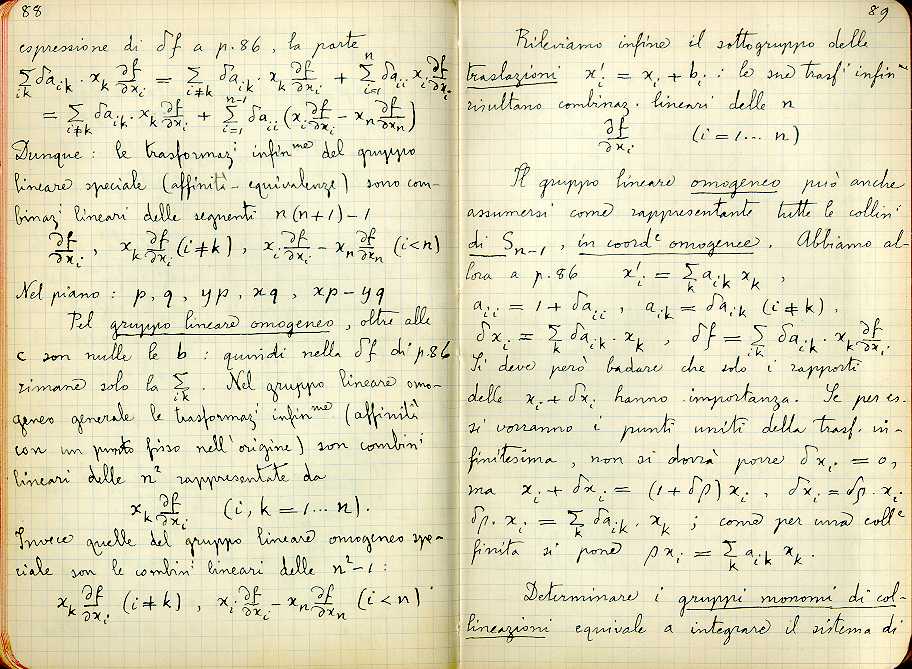 88
espressione di δf a p. 86, la parte
∑_{ik} δa_{ik} · x_k ∂f/∂x_i = ∑_{i≠k} δa_{ik} · x_k ∂f/∂x_i + ∑_{i=1}^{n} δa_{ii} x_i ∂f/∂x_i
= ∑_{i≠k} δa_{ik} · x_k ∂f/∂x_i + ∑_{i=1}^{n-1} δa_{ii} (x_i ∂f/∂x_i - x_n ∂f/∂x_n)
Dunque: le trasformaz^i infin^me del gruppo
lineare speciale (affinità - equivalenze) sono com-
binaz^i lineari delle seguenti n(n+1)-1
∂f/∂x_i , x_k ∂f/∂x_i (i≠k) , x_i ∂f/∂x_i - x_n ∂f/∂x_n (i<n)
Nel piano: p, q, yp, xq, xp-yq
Pel gruppo lineare omogeneo, oltre alle
c son nulle le b : quindi nella δf di p. 86
rimane solo la ∑_{ik}. Nel gruppo lineare omo-
geneo generale le trasformaz^i infin^me (affinità
con un punto fisso nell'origine) son combin^i
lineari delle n² rappresentate da
x_k ∂f/∂x_i (i, k = 1... n).
Invece quelle del gruppo lineare omogeneo spe-
ciale son le combin^i lineari delle n²-1:
x_k ∂f/∂x_i (i≠k) , x_i ∂f/∂x_i - x_n ∂f/∂x_n (i<n).
89
Rileviamo infine il sottogruppo delle
traslazioni x'_i = x_i + b_i : le sue trasf^i infin^me
risultano combinaz. lineari delle n
∂f/∂x_i (i=1... n)
Il gruppo lineare omogeneo può anche
assumersi come rappresentante tutte le collin^i
di S_{n-1}, in coord^e omogenee. Abbiamo al-
lora a p. 86 x'_i = ∑_k a_{ik} x_k ,
a_{ii} = 1 + δa_{ii} , a_{ik} = δa_{ik} (i≠k) ,
δx_i = ∑_k δa_{ik} · x_k , δf = ∑_{ik} δa_{ik} · x_k ∂f/∂x_i.
Si deve però badare che solo i rapporti
delle x_i + δx_i hanno importanza. Se per es.
si vorranno i punti uniti della trasf. in-
finitesima, non si dovrà porre δx_i = 0,
ma x_i + δx_i = (1+δρ) x_i , δx_i = δρ · x_i
δρ · x_i = ∑_k δa_{ik} · x_k ; come per una coll^e
finita si pone ρx_i = ∑_k a_{ik} x_k.
Determinare i gruppi monomi di col-
lineazioni equivale a integrare il sistema di